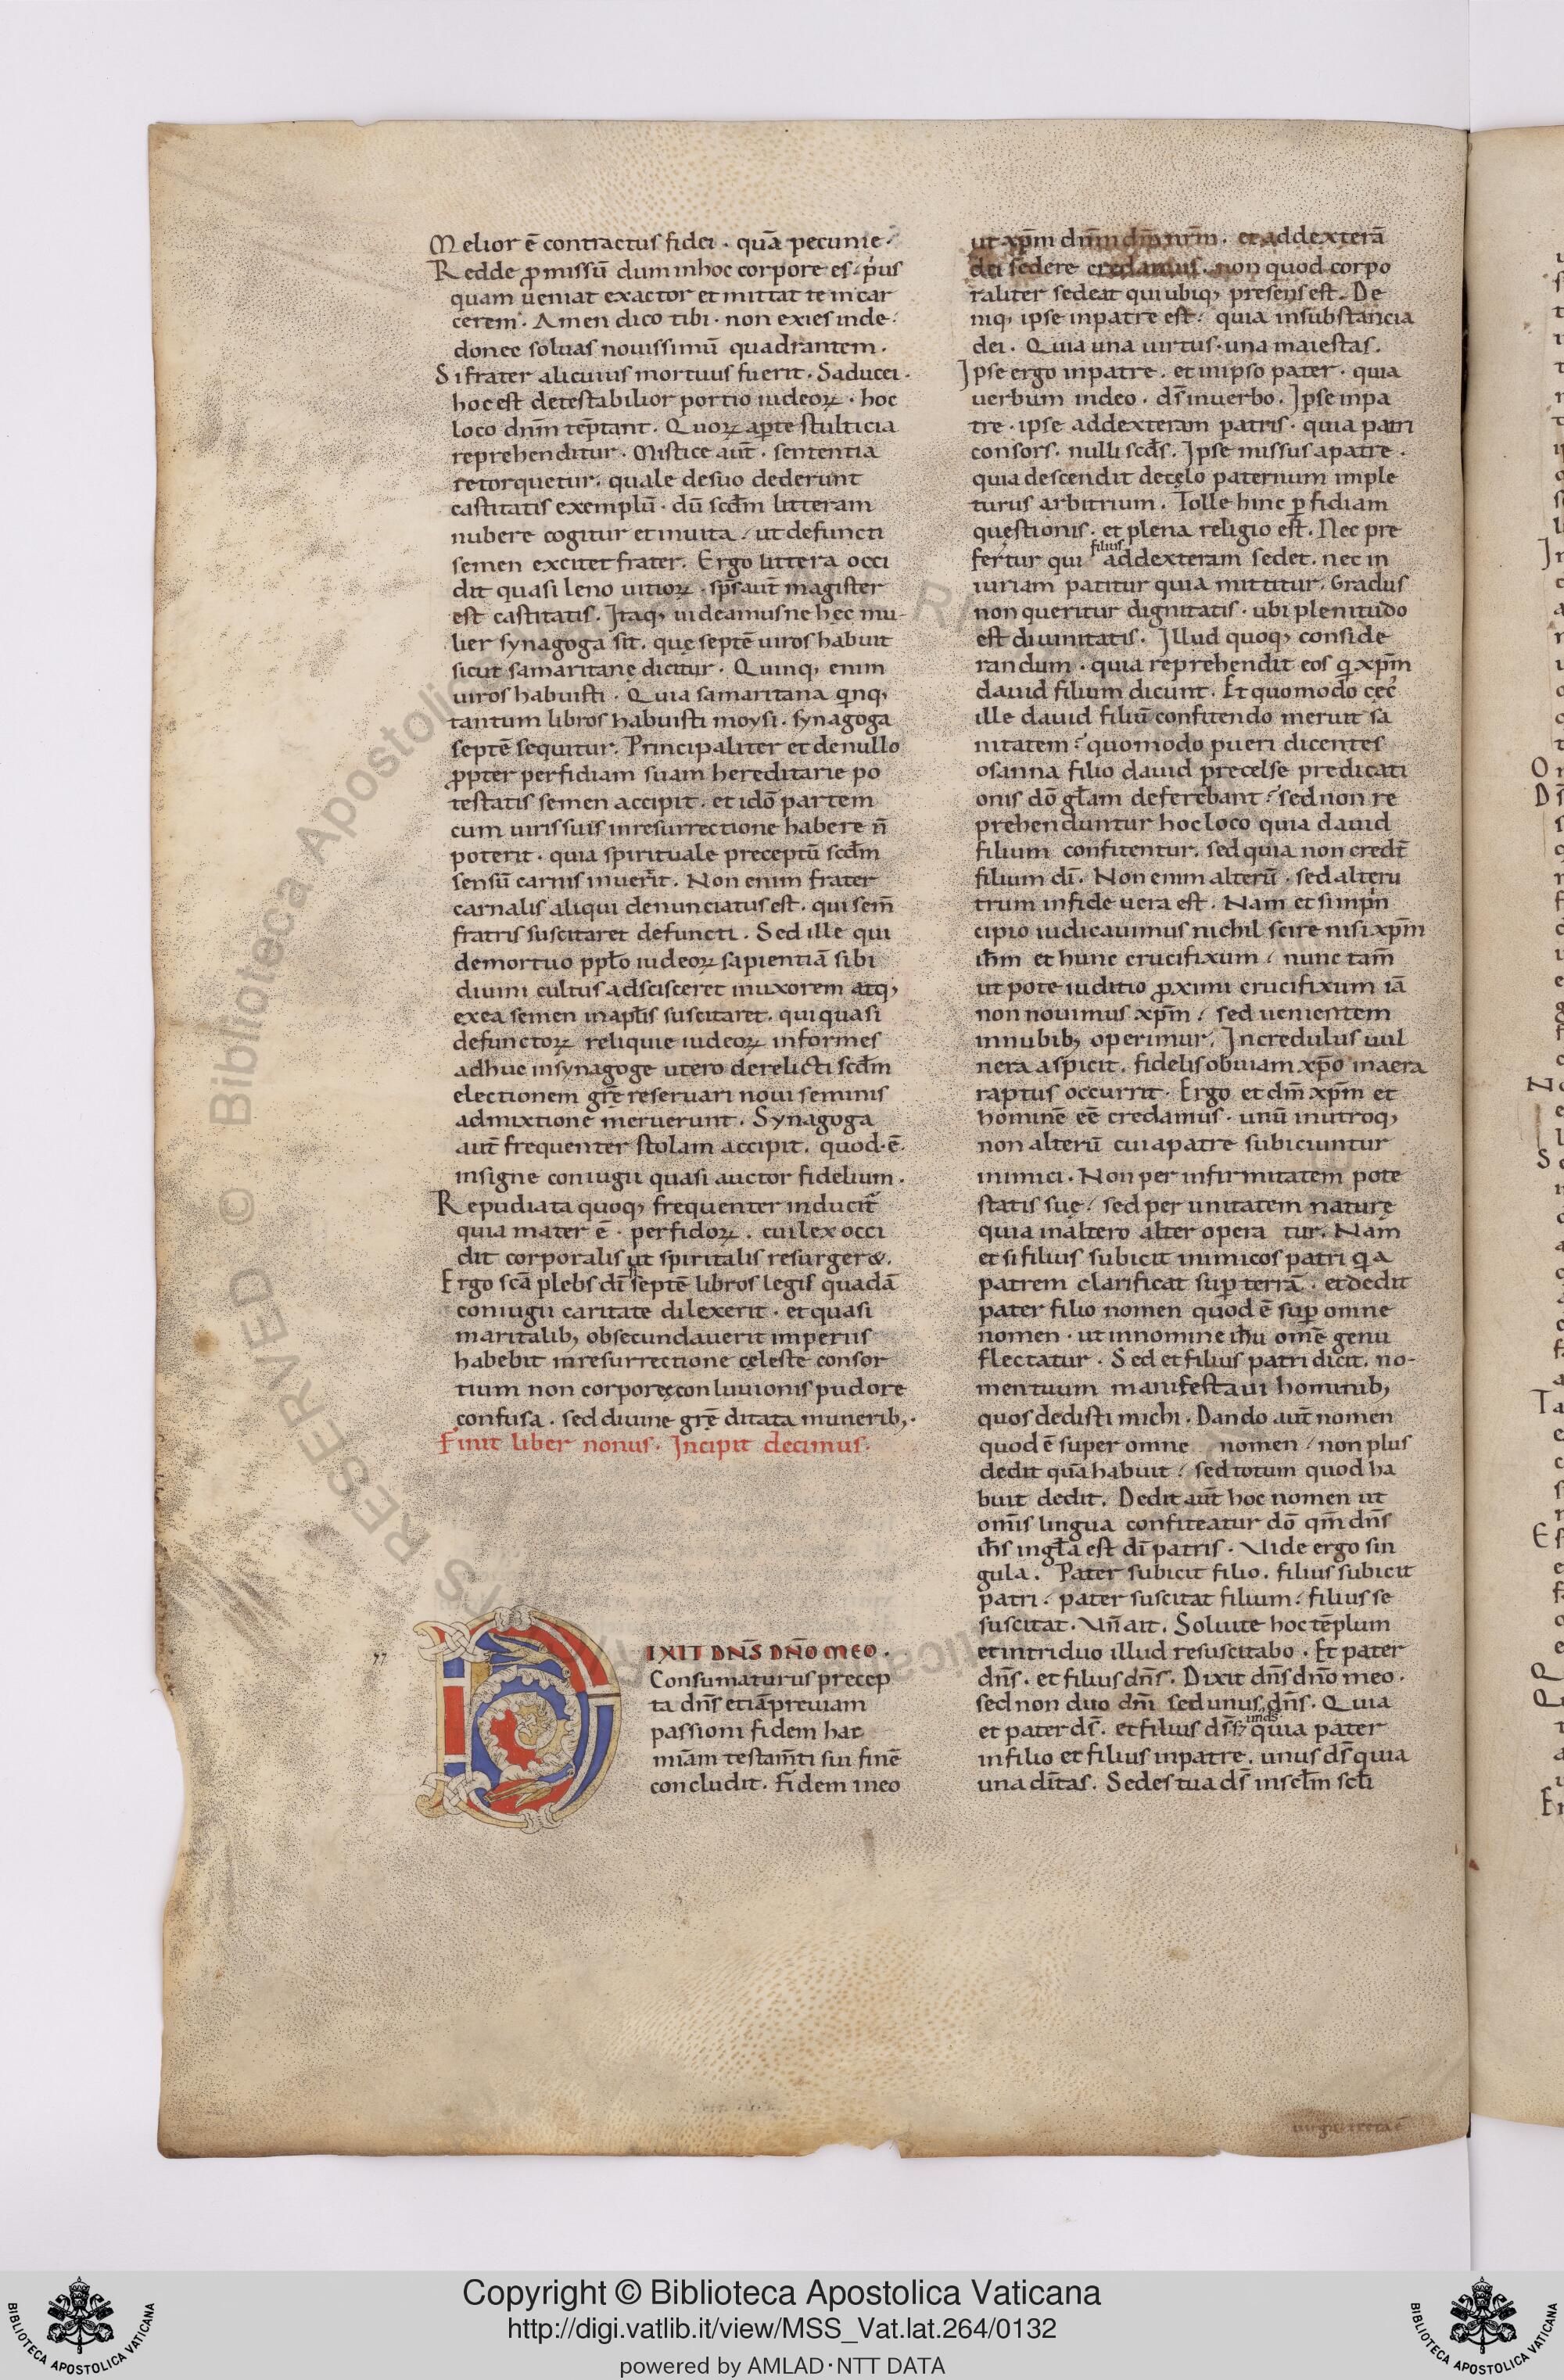 Melior ē contractus fidei · quā pecunie ·
Redde ꝓmissū dum inhoc corpore es · pͥus
quam ueniat exactor et mittat te in car
cerem · Amen dico tibi · non exies inde ·
donec soluas nouissimū quadrantem ·
Si frater alicuius mortuus fuerit · Saducei ·
hoc est detestabilior portio iudeoꝝ · hoc
loco dn̄m tēptant . Quoꝝ aꝑte stulticia
reprehenditur · Mistice aūt · sententia
retorquetur · quale desuo dederunt
castitatis exemplū · dū scd̄m litteram
nubere cogitur et inuita / ut defuncti
semen excitet frater . Ergo littera occi
dit quasi leno uitioꝝ · sp̄s aūt magister
est castitatis . Itaq, uideamus ne hęc mu-
lier synagoga sit . quę septē uiros habuit
sicut samaritanę dicitur . Quinq, enim
uiros habuisti . Quia samaritana qͥnq,
tantum libros habuisti moysi . synagoga
septē sequitur . Principaliter et denullo
ꝓpter perfidiam suam hereditarie po
testatis semen accipit . et idō partem
cum uiris suis inresurrectione habere n̄
poterit · quia spirituale preceptū scd̄m
sensū carnis inuerͭit . Non enim frater
carnalis aliqui denunciatus est . qui sem̄
fratris suscitaret defuncti . Sed ille qui
demortuo ppl̄o iudeoꝝ sapientiā sibi
diuini cultus adscisceret inuxorem atq,
exea semen inapl̄is suscitaret . qui quasi
defunctoꝝ reliquie iudeoꝝ informes
adhuc insynagoge utero derelicti scd̄m
electionem gr̄ę reseruari noui seminis
admixtione meruerunt . Synagoga
aūt frequenter stolam accipit . quod · ē ·
insigne coniugii quasi auctor fidelium ·
Repudiata quoq, frequenter inducit̄
quia mater ē · perfidoꝝ . cui lex occi
dit corporalis ut spiritalis resurger&.
Ergo sc̄a plebs dī septē libros legis quadā
coniugii caritate dilexerit · et quasi
maritalib, obsecundauerit imperiis
habebit inresurrectione cęleste consor
tium non corporęę conluuionis pudore
confusa . sed diuine gr̄ę ditata munerib, ·
Finit liber nonus · Incipit decimus ·
DIXIT DN̄S DN̄O MEO ·
Consumaturus precep
ta dn̄s etiā preuiam
passioni fidem hac
miam testam̄ti sui finē
concludit . fidem ineo
ut xp̄m dn̄m dīm nr̄m . et addexterā
dei sedere credamus . non quod corpo
raliter sedeat qui ubiq, presens est . De
niq, ipse inpatre est · quia insubstancia
dei . Quia una uirtus · una maiestas .
Ipse ergo inpatre . et inipso pater · quia
uerbum indeo . ds̄ inuerbo . Ipse inpa
tre · ipse addexteram patris · quia patri
consors . nulli scd̄s . Ipse missus apatre .
quia descendit decęlo paternum imple
turus arbitrium . Tolle hinc ꝑfidiam
quęstionis . et plena religio est . Nec pre
fertur qui filius addexteram sedet . nec in
iuriam patitur quia mittitur . Gradus
non queritur dignitatis · ubi plenitudo
est diuinitatis . Illud quoq, conside
randum · quia reprehendit eos qͥ xp̄m
dauid filium dicunt . Et quomodo cec᷒
ille dauid filiū confitendo meruit sa
nitatem · quomodo pueri dicentes
osanna filio dauid precelse predicati
onis dō gl̄am deferebant · sed non re
prehenduntur hoc loco quia dauid
filium confitentur . sed quia non credt̄
filium dī . Non enim alterū · sed alteru
trum infide uera est . Nam et si inpͥn
cipio iudicauimus nichil scire nisi xp̄m
ih̄m et hunc crucifixum / nunc tam̄
ut pote iuditio ꝓximi crucifixum iā
non nouimus xp̄m / sed uenientem
innubib, operimur . Incredulus uul
nera aspicit . fidelis obuiam xp̄o inaera
raptus occurrit . Ergo et dm̄ xp̄m et
hominē eē credamus . unū inutroq,
non alterū cui apatre subiciuntur
inimici . Non per infirmitatem pote
statis suę / sed per unitatem naturę
quia inaltero alter opera tur . Nam
et si filius subicit inimicos patri qͥa
patrem clarificat suꝑ terrā . et dedit
pater filio nomen quod ē suꝑ omne
nomen · ut innomine ih̄u om̄e genu
flectatur . Sed et filius patri dicit . no-
men tuum manifestaui hominib,
quos dedisti michi . Dando aūt nomen
quod ē super omne nomen / non plus
dedit quā habuit / sed totum quod ha
buit dedit . Dedit aūt hoc nomen ut
om̄is lingua confiteatur dō qm̄ dn̄s
ih̄s ingl̄a est dī patris . Uide ergo sin
gula . Pater subicit filio . filius subicit
patri · pater suscitat filium · filius se
suscitat . Un̄ ait . Soluite hoc tēplum
et intriduo illud resuscitabo . Et pater
dn̄s . et filius dn̄s . Dixit dn̄s dn̄o meo ·
sed non duo dn̄i sed unus dn̄s . Quia
et pater ds̄ . et filius ds̄ s; unus ds̄ quia pater
infilio et filius inpatre . unus ds̄ quia
una dīitas . Sedes tua ds̄ inscl̄m scl̄i
Copyright © Biblioteca Apostolica Vaticana
http://digi.vatlib.it/view/MSS_Vat.lat.264/0132
powered by AMLAD·NTT DATA
BIBLIOTECA APOSTOLICA VATICANA
BIBLIOTECA APOSTOLICA VATICANA